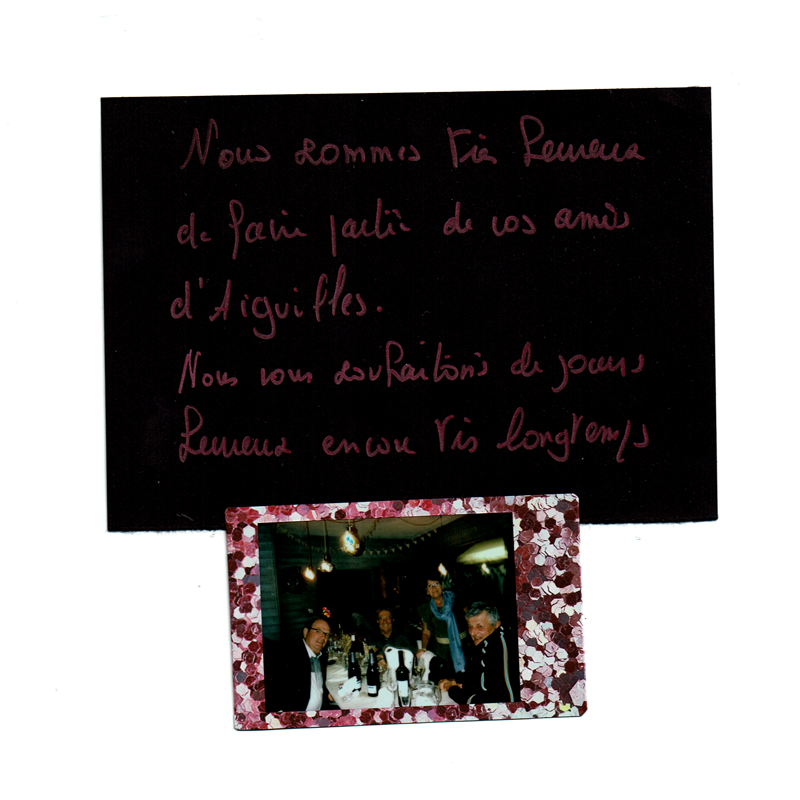 Nous sommes très heureux
de faire partie de vos amis
d'Aiguilles.
Nous vous souhaitons de jours
heureux encore très longtemps